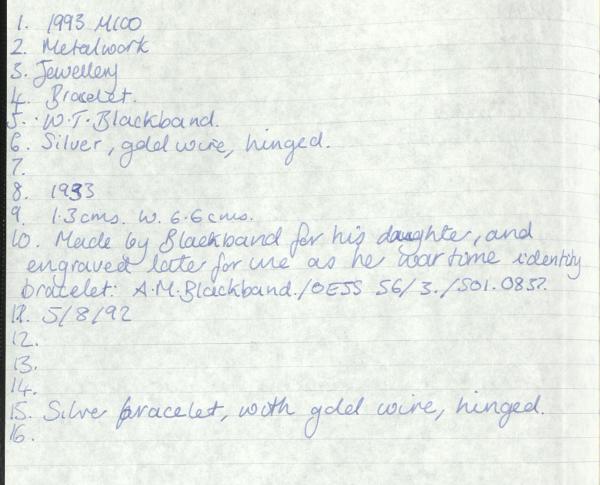 1. 1993 M100
2. Metalwork
3. Jewellery
4. Bracelet.
5. W.T. Blackband.
6. Silver, gold wire, hinged.
7.
8. 1933
9. 1.3cms. W. 6.6cms.
10. Made by Blackband for his daughter, and
engraved later for use as he wartime identity
bracelet: A.M.Blackband./OESS 56/3./501.0857.
11. 5/8/92
12.
13.
14.
15. Silver bracelet, with gold wire, hinged.
16.